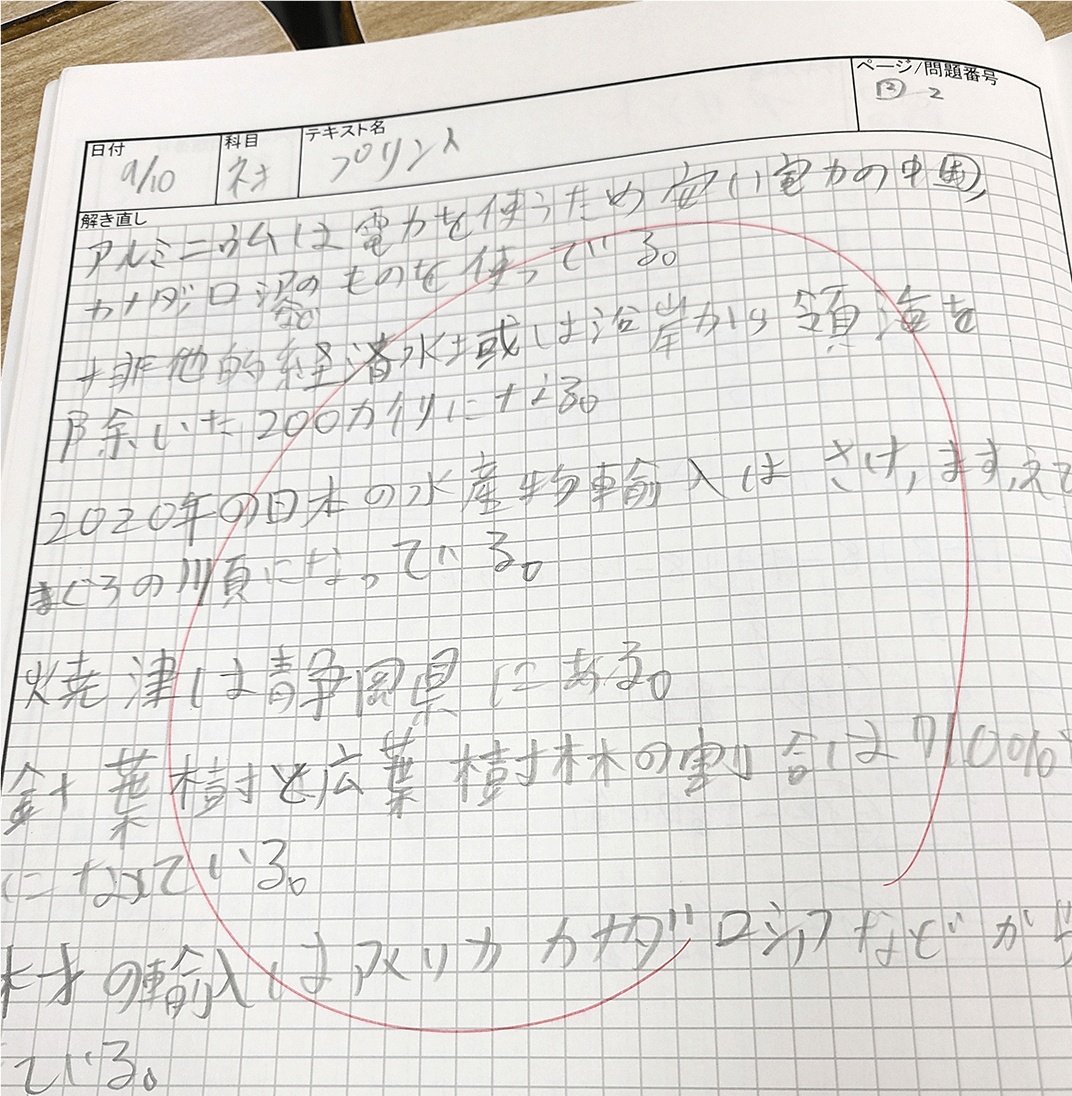 ページ/問題番号
② 2
日付
9/10
科目
ネオ
テキスト名
プリント
解き直し
アルミニウムは電力を使うため安い電力の中国,
カナダ ロシアのものを使っている。
排他的経済水域は沿岸から領海を
除いた200カイリになる。
2020年の日本の水産物輸入は さけ,ます,えび
まぐろの順になっている。
焼津は静岡県にある。
針葉樹と広葉樹林の割合は
になっている。
木材の輸入はアメリカ カナダ ロシアなどが
ている。